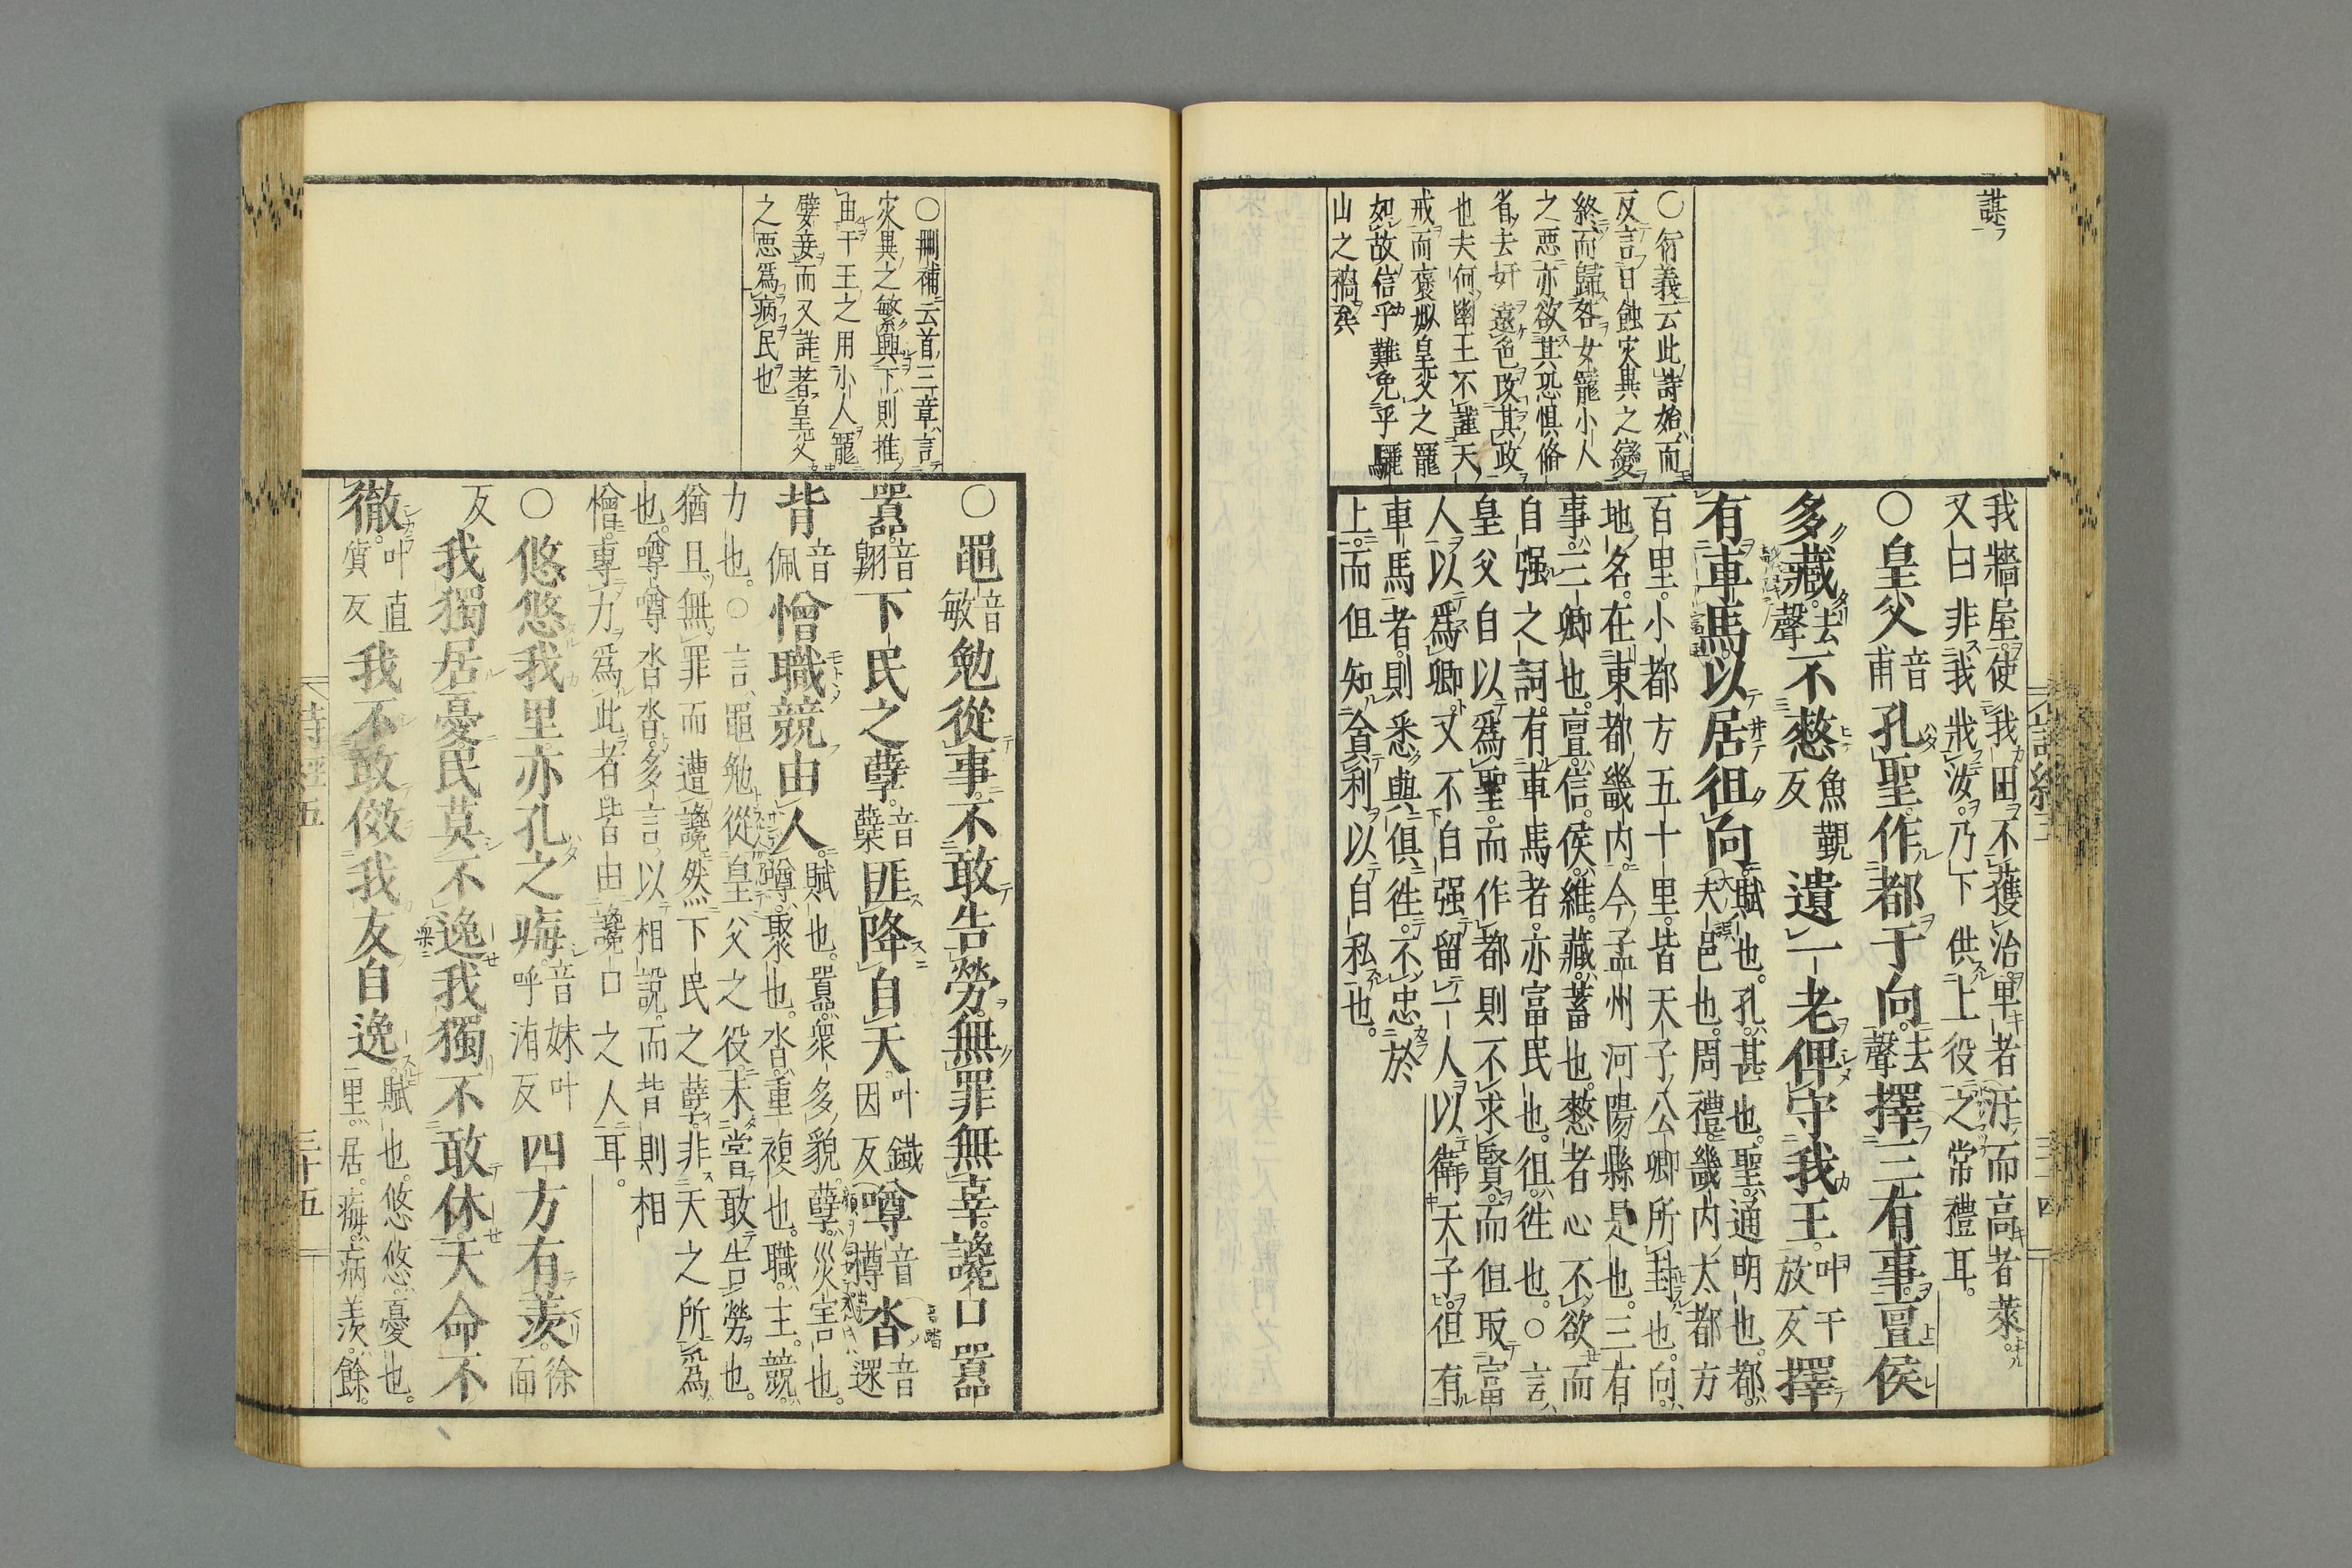 謀
○衍義云此詩始而
反言日蝕灾異之變
終而歸咎女寵小人
之惡亦欲其恐惧脩
省去奸遠色攺其政
也夫何幽王不謹天
戒而褒姒皇父之寵
如故信乎難免乎驪
山之禍矣
我牆屋使我田不獲治卑者汙而高者萊
又曰非我戕汝乃下供上役之常禮耳。
○皇父音甫孔聖作都于向去聲擇三有事亶侯
多藏去聲不憖魚覲反遺一老俾守我王叶于放反擇
有車馬以居徂向賦也。孔甚也。聖通明也。都
大夫邑也。周禮畿內大都方
百里。小都方五十里。皆天子公卿所封也。向
地名。在東都畿內。今孟州河陽縣是也。三有
事。三卿也。亶信。侯維。藏蓄也。憖者心不欲而
自强之詞。有車馬者。亦富民也。徂徃也。○言
皇父自以爲聖。而作都則不求賢。而但取富
人以爲卿。又不自强留一人以衛天子。但有
車馬者。則悉與俱徃。不忠於
上。而但知貪利以自私也。
詩經五
三十四
○刪補云首三章言
灾異之繁興下則推
由于王之用小人寵
嬖妾而又詳著皇父
之惡爲病民也
○黽音敏勉從事不敢告勞無罪無辜讒口囂
囂音翺下民之孽音櫱匪降自天叶鐵因反噂音樽沓音遝
背音佩憎職競由人賦也。囂衆多貌。孽災害也。
噂聚也。沓重複也。職主。競
力也。○言黽勉從皇父之役未嘗敢告勞也。
猶且無罪而遭讒。然下民之孽。非天之所爲
也。噂噂沓沓。多言以相說。而背則相
憎。專力爲此者。皆由讒口之人耳。
○悠悠我里亦孔之痗音妹叶呼洧反四方有羨徐面
反我獨居憂民莫不逸我獨不敢休天命不
徹叶直質反我不敢傚我友自逸賦也。悠悠憂也。
里居。痗病。羨餘。
詩經五
三十五